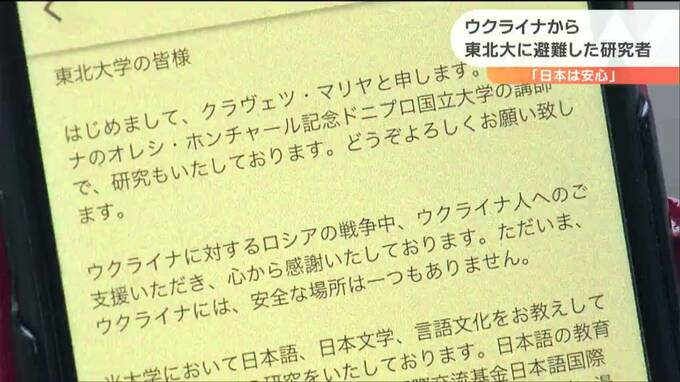 ウクライナから
東北大に避難した研究者
「日本は安心」
東北大学の皆様
はじめまして、クラヴェツ・マリヤと申します。
ナのオレシ・ホンチャール記念ドニプロ国立大学の講師
で、研究もいたしております。どうぞよろしくお願い致し
ます。
ウクライナに対するロシアの戦争中、ウクライナ人へのご
支援いただき、心から感謝いたしております。ただいま、
ウクライナには、安全な場所は一つもありません。
大学において日本語、日本文学、言語文化をお教えして
の研究をいたしております。日本語の教育
際交流基金日本語国際